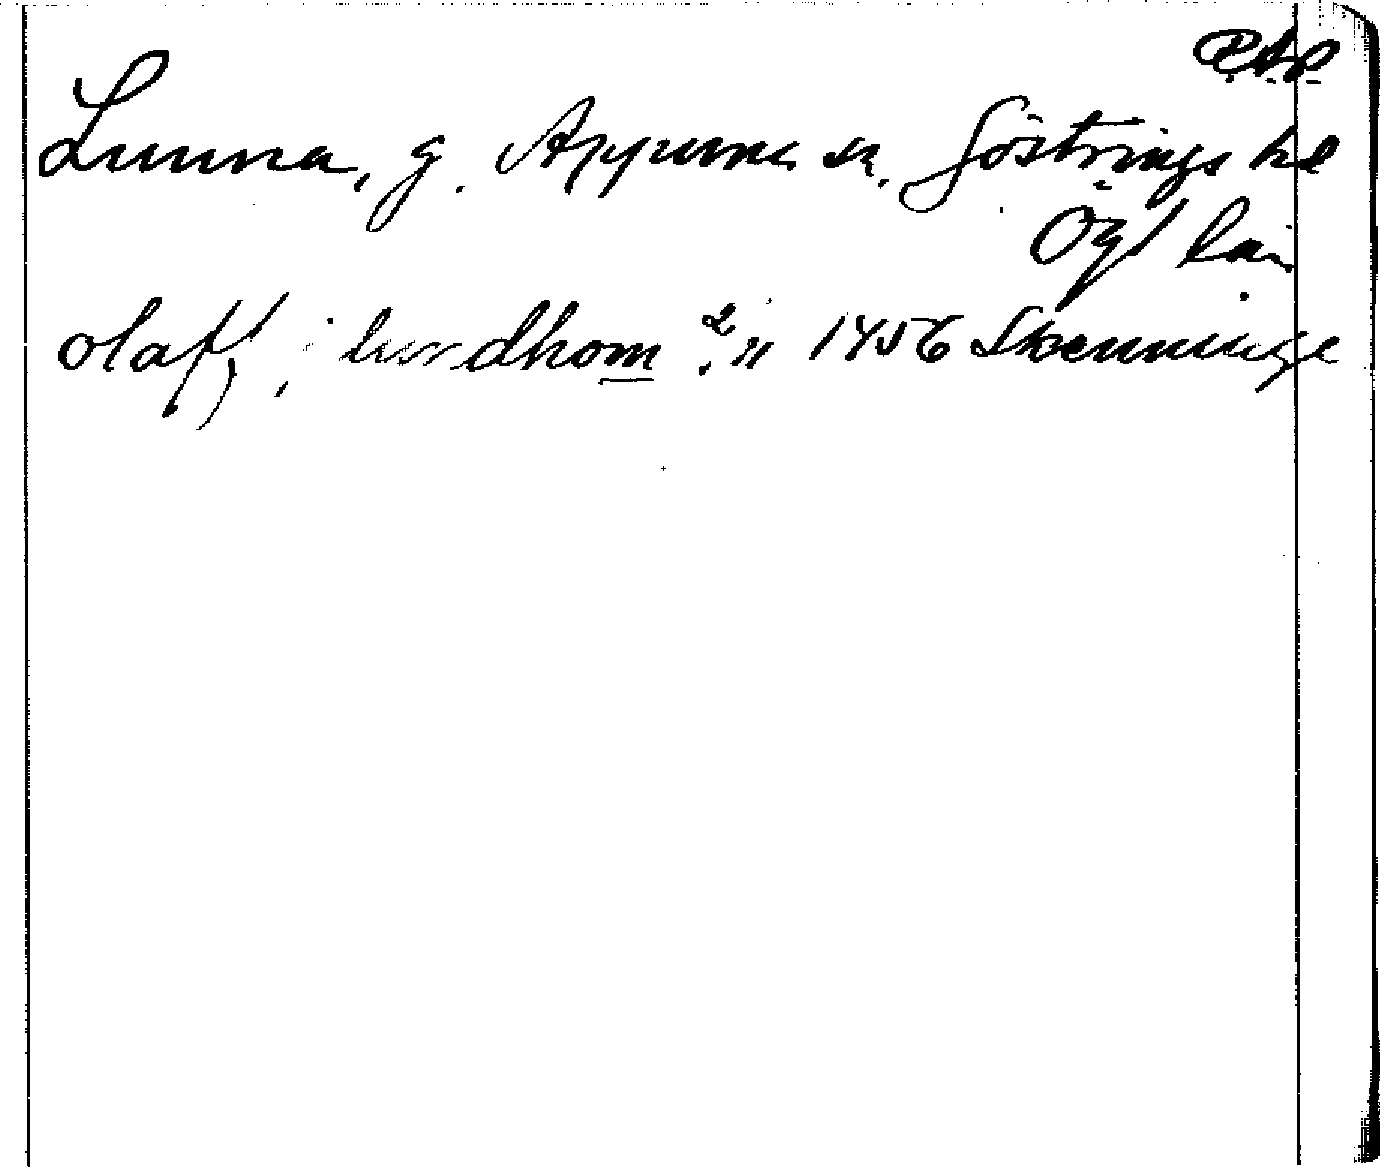 RAP
Lunna, g. Appuna sn, Göstrings hd
Ögl län
olaff i lwndhom 2/11 1456 Skenninge